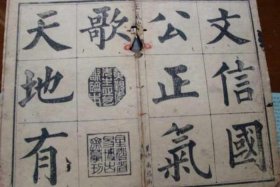 文信國
公正氣
歌
天地有